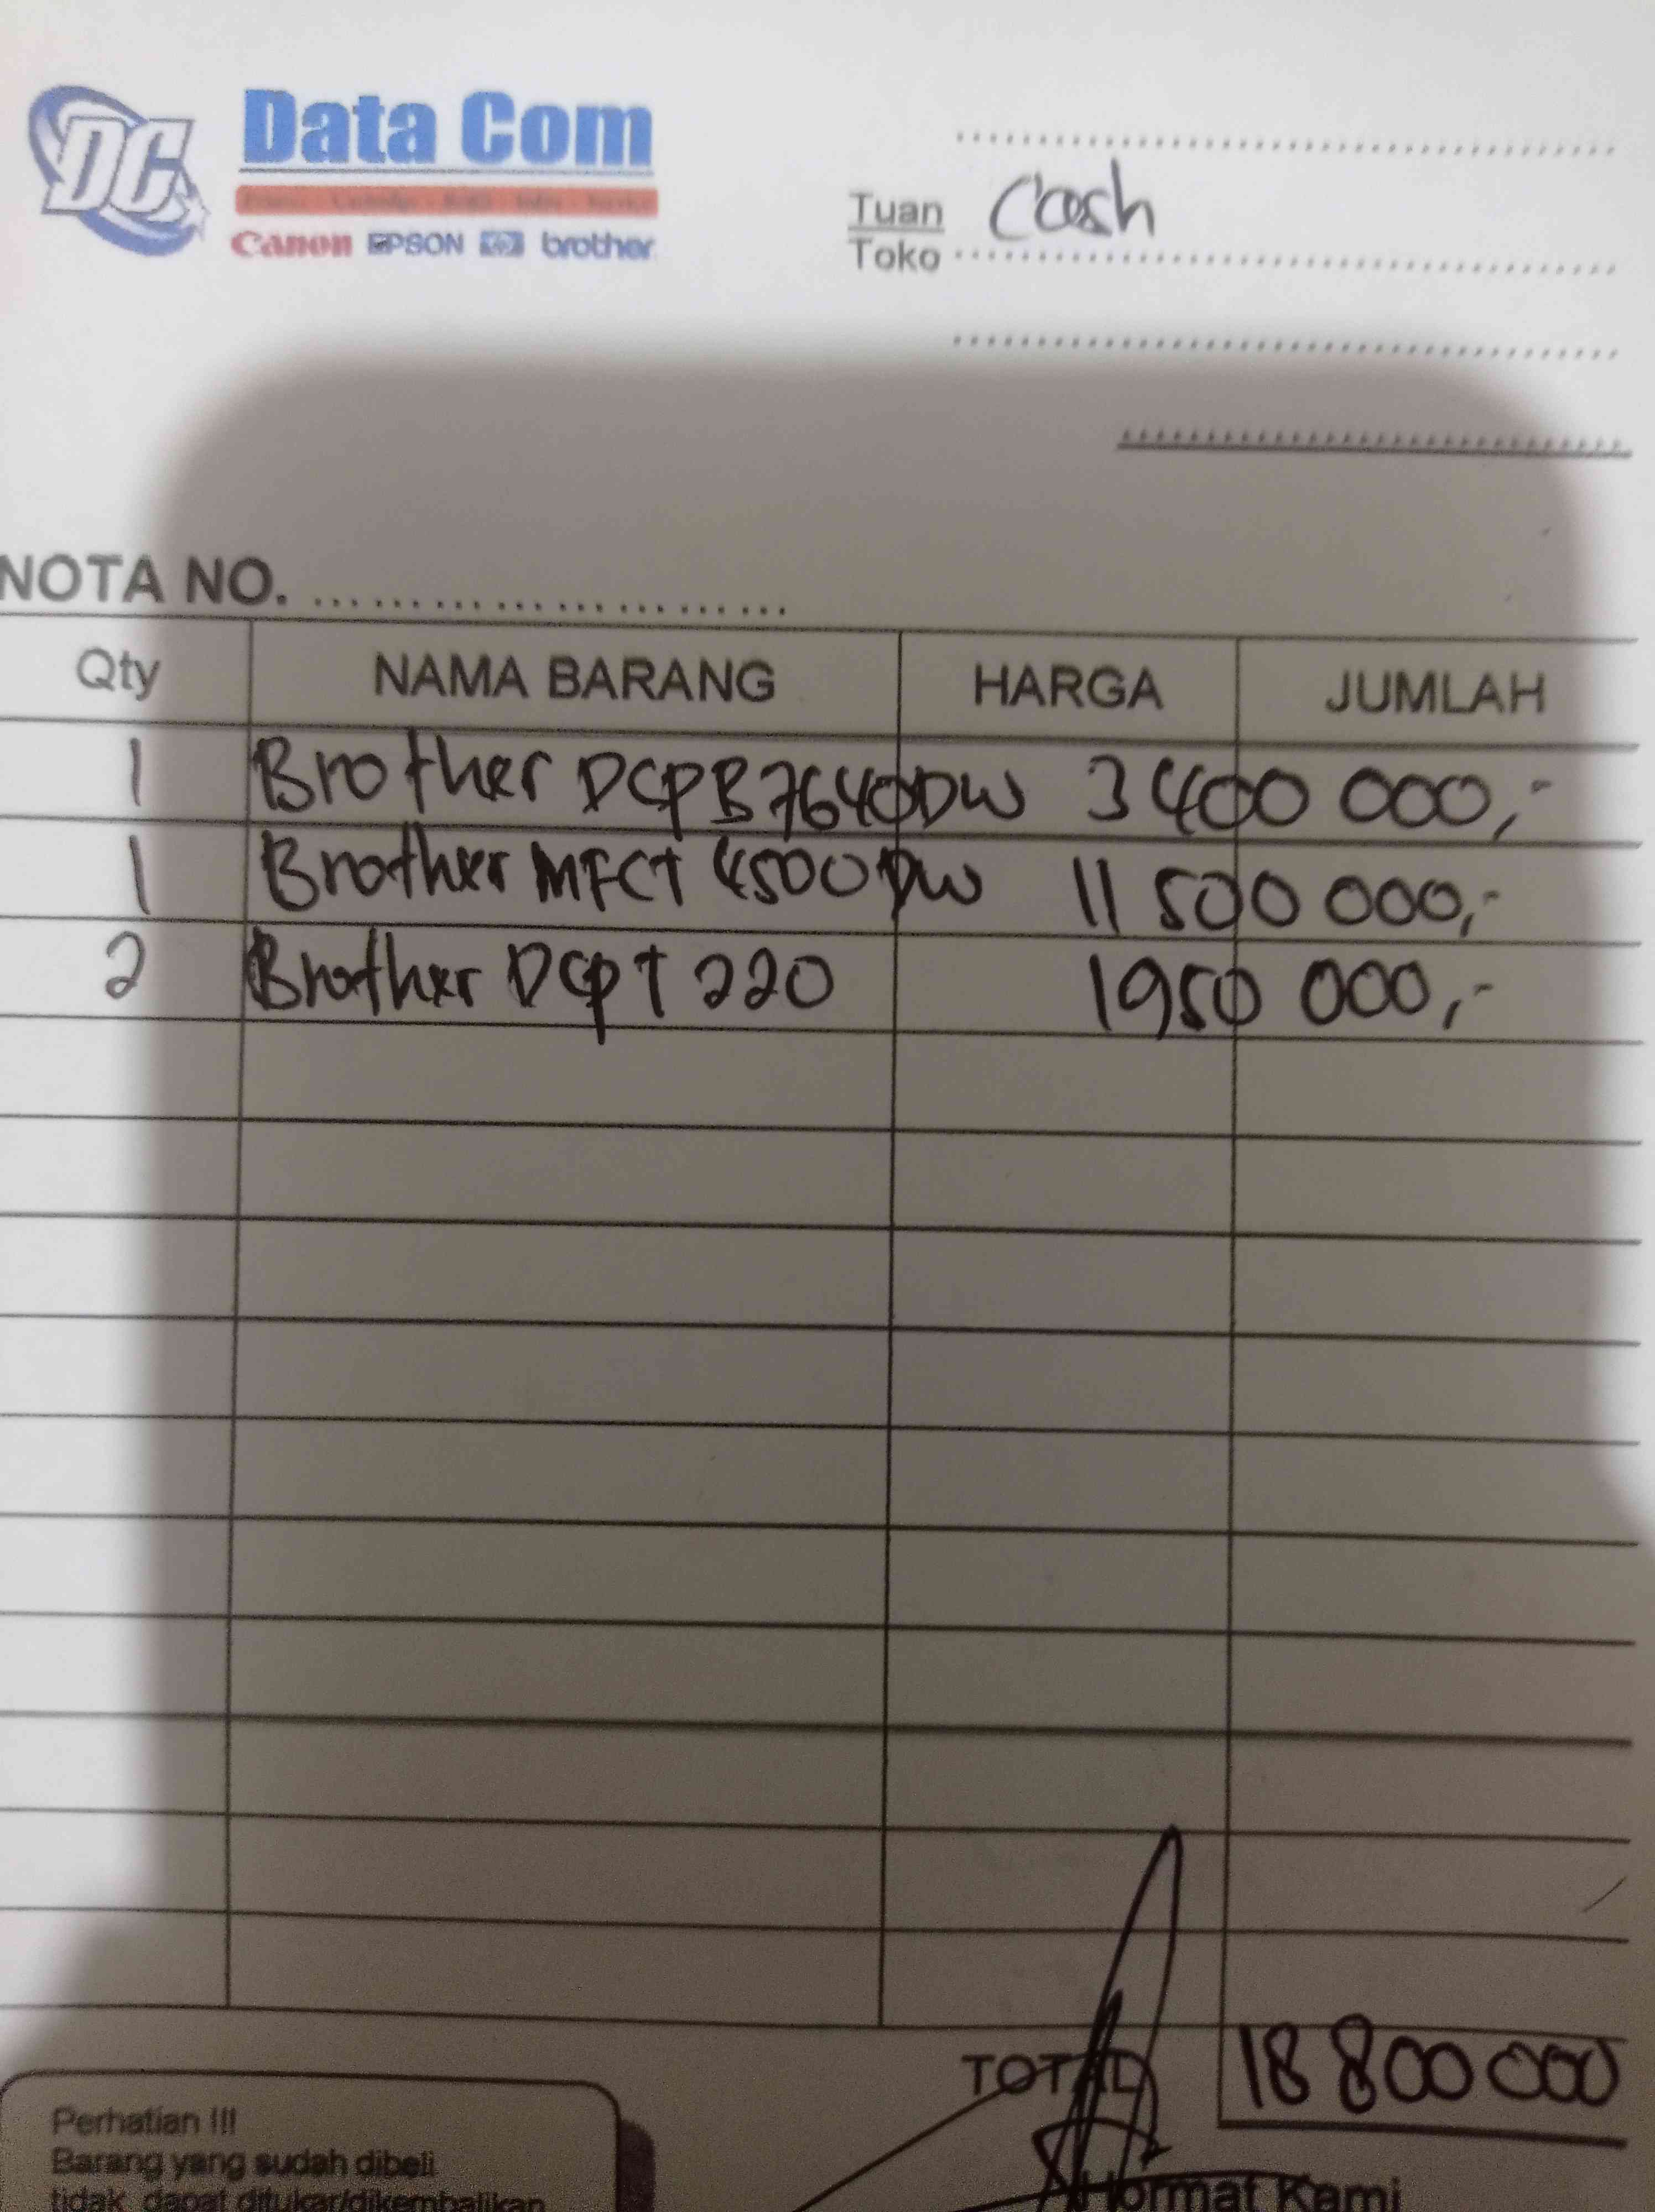 DC
Data Com
Canon EPSON hp brother
Tuan
Toko
Cash
NOTA NO.
Qty NAMA BARANG HARGA JUMLAH
1 Brother DCPB7640DW 3 400 000,-
1 Brother MFCT 4500DW 11 500 000,-
2 Brother DCPT 220 1950 000,-
TOTAL 18 800 000
Perhatian !!!
Barang yang sudah dibeli
tidak dapat ditukar/dikembalikan
Hormat Kami